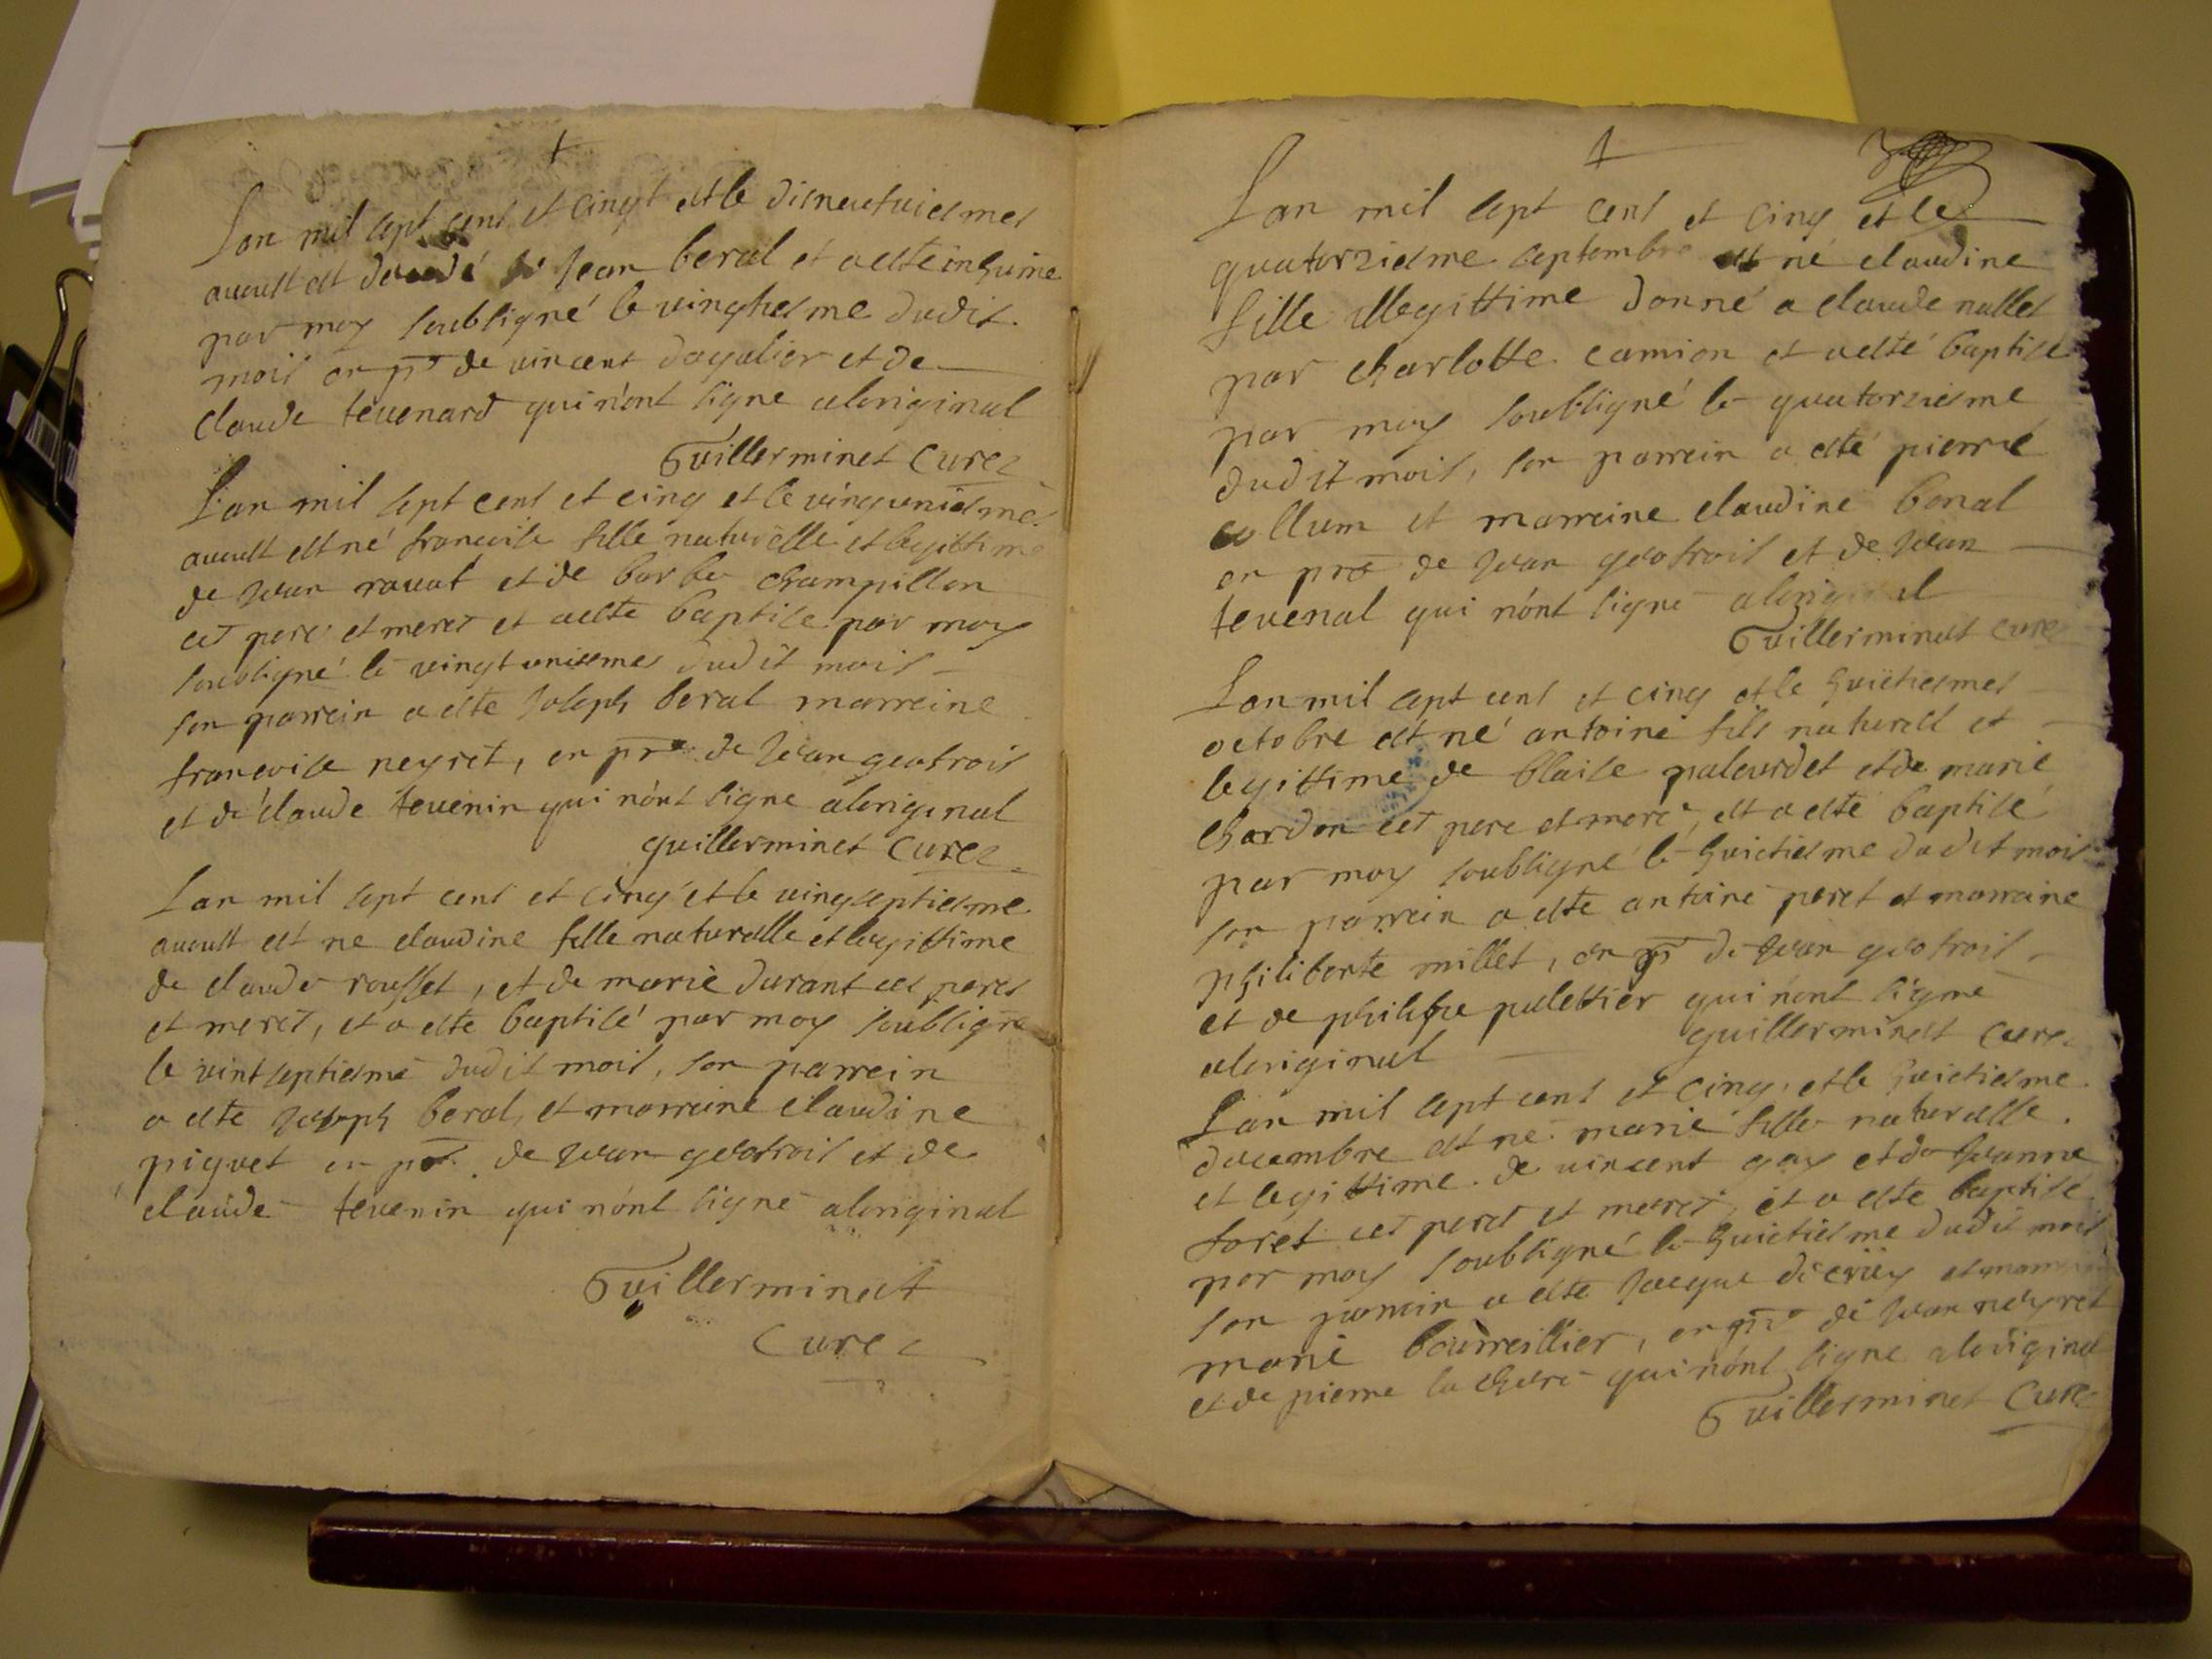 Lan mil sept cens et cinq et le disneufuiesmes
auoust est decedé Jean beral et a esté inhumé
par moy soubsigné le vingtiesme dudit
mois en pr de vincent dagalier et de
claude teuenard qui n'ont signe aloriginal
Guillerminet Curez
Lan mil sept cens et cinq et le vinguniesme
auoust est né francoise fille naturelle et legittime
de Jean rauat et de barbe champillon
ces peres et meres et a esté baptise par moy
soubsigné le vingtuniesmes dudit mois
son parrein a esté Joseph beral marreine
francoise neyret, en pre de Jean geofrois
et de claude teuenin qui n'ont signe aloriginal
guillerminet Curez
Lan mil sept cens et cinq et le vingseptiesme
auoust est ne claudine fille naturelle et legittime
de claude rousset, et de marie durant ces peres
et meres, et a esté baptisé par moy soubsigne
le vintseptiesme dudit mois, son parrein
a esté Joseph beral, et marreine claudine
piquet en pre de Jean geofrois et de
claude teuenin qui n'ont signe aloriginal
Guillerminet
Curez
Lan mil sept cens et cinq et le
quatorziesme septembre est né claudine
fille illegittime donné a claude nallet
par charlotte camion et a esté baptisé
par moy soubsigné le quatorziesme
dudit mois, son parrein a esté pierre
collum et marreine claudine bonal
en pre de Jean geofrois et de Jean
teuenal qui n'ont signe aloriginal
Guillerminet cure
Lan mil sept cens et cinq et le huictiesmes
octobre est né antoine fils naturel et
legittime de blaise paleurdet et de marie
chardon ces pere et mere, et a esté baptisé
par moy soubsigné le huictiesme dudit mois
son parrein a esté antoine peret et marraine
philiberte millet, en pr de Jean geofrois
et de philibe palettier qui n'ont signe
aloriginal guillerminet Cure
Lan mil sept cens et cinq, et le huictiesme
decembre est ne marie fille naturelle
et legittime de vincent gay et de Jeanne
foret ces peres et meres, et a esté baptisé
par moy soubsigné le huictiesme dudit mois
son parrein a esté Jacque et
marie bourreillier, en pre de Jean neyret
et de pierre la chere qui n'ont signe aloriginal
Guillerminet Cure